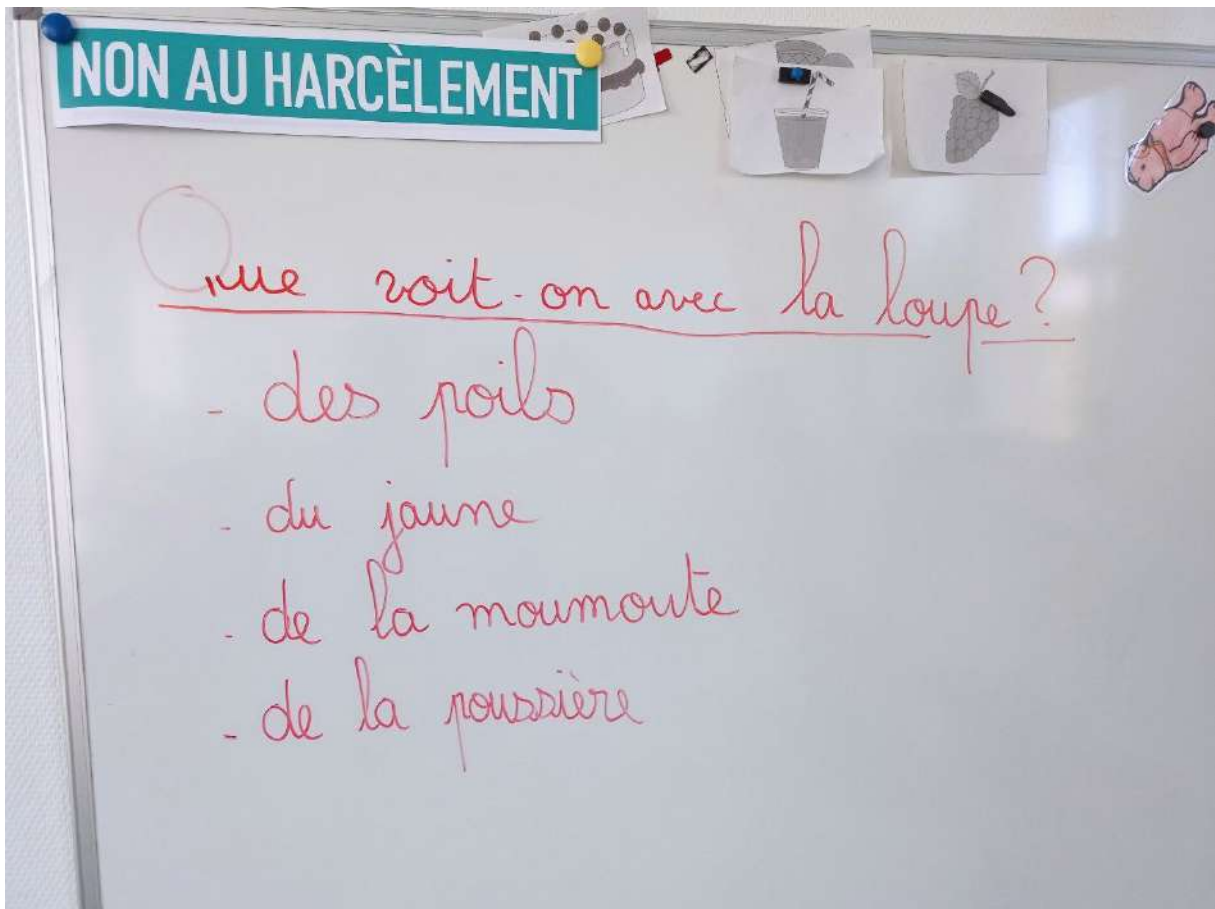 NON AU HARCÈLEMENT
Que voit-on avec la loupe ?
- des poils
- du jaune
- de la moumoute
- de la poussière